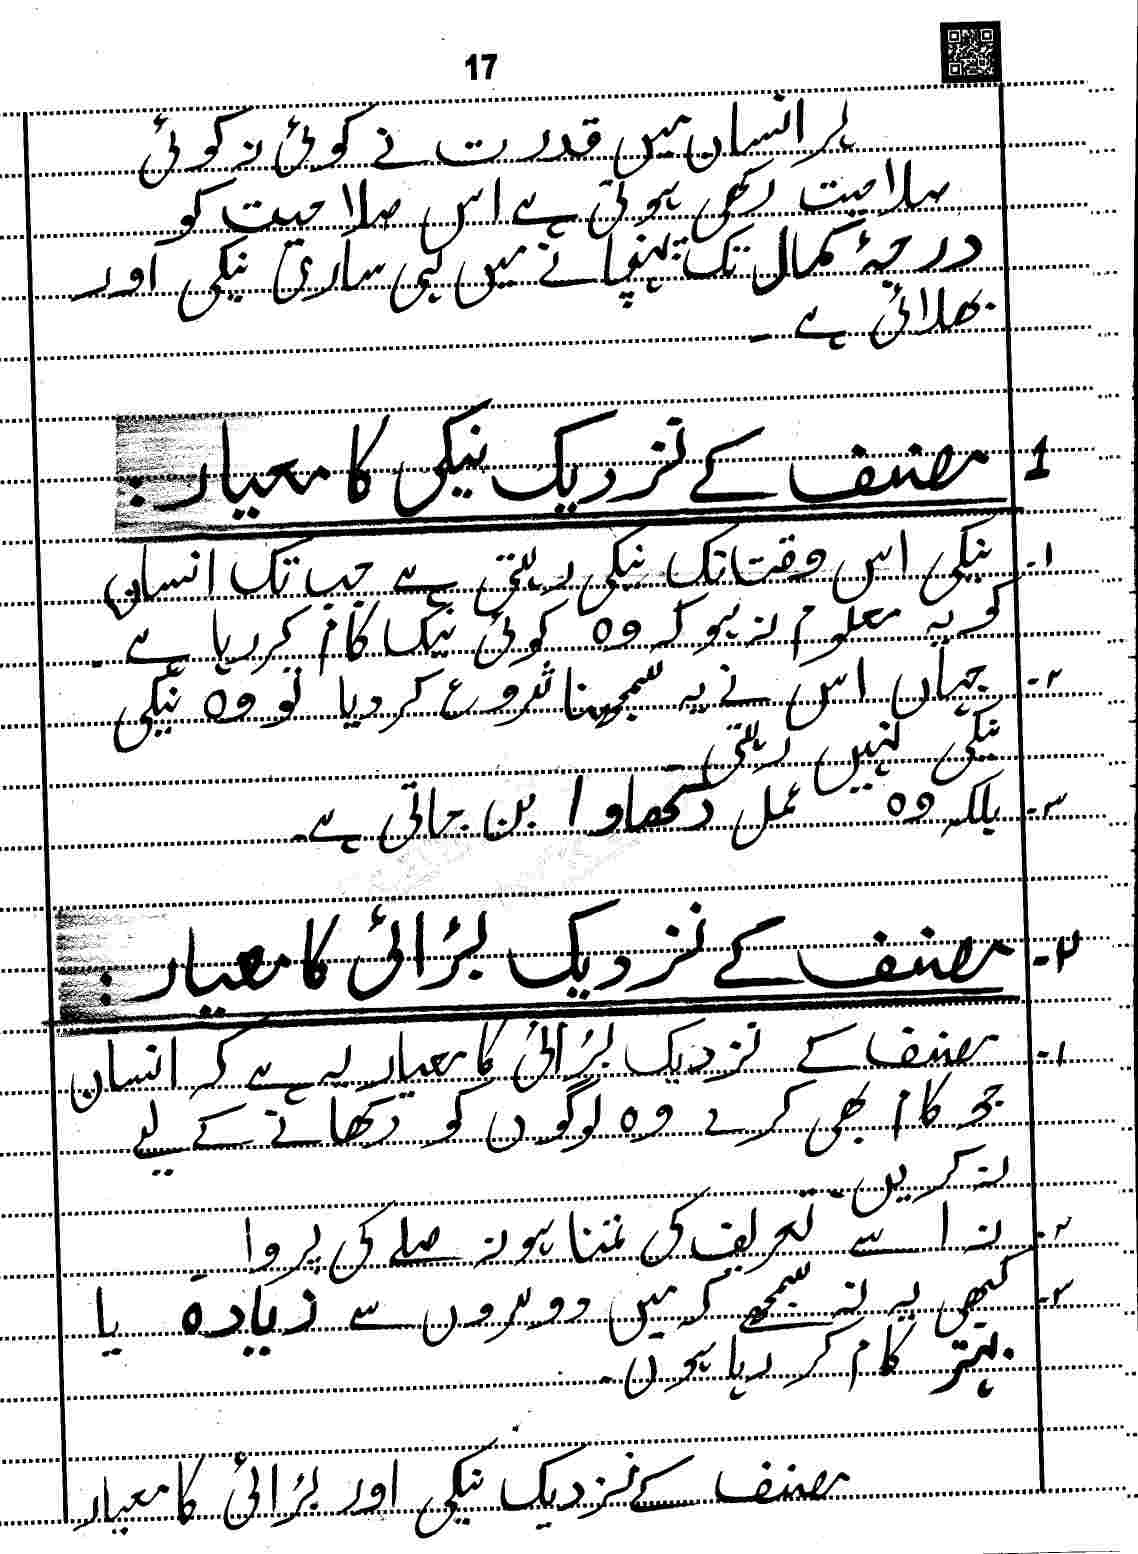 17
ہر انسان میں قدرت نے کوئی نہ کوئی
صلاحیت رکھی ہوتی ہے اس صلاحیت کو
درجۂ کمال تک پہنچانے میں ہی ساری نیکی اور
بھلائی ہے ۔
1 مصنف کے نزدیک نیکی کا معیار :
۱۔ نیکی اس وقت تک نیکی رہتی ہے جب تک انسان
کو یہ معلوم نہ ہو کہ وہ کوئی نیک کام کر رہا ہے ۔
۲۔ جہاں اس نے یہ سمجھنا شروع کر دیا تو وہ نیکی
نیکی نہیں رہتی
۳۔ بلکہ وہ عمل دکھاوا بن جاتی ہے۔
۲۔ مصنف کے نزدیک بڑائی کا معیار :
۱۔ مصنف کے نزدیک بڑائی کا معیار یہ ہے کہ انسان
جو کام بھی کرے وہ لوگوں کو دکھانے کے لیے
نہ کریں۔
۲۔ نہ اسے تعریف کی تمنا ہو نہ صلے کی پروا
۳۔ کبھی یہ نہ سمجھے کہ میں دوسروں سے زیادہ یا
بہتر کام کر رہا ہوں۔
مصنف کے نزدیک نیکی اور بڑائی کا معیار